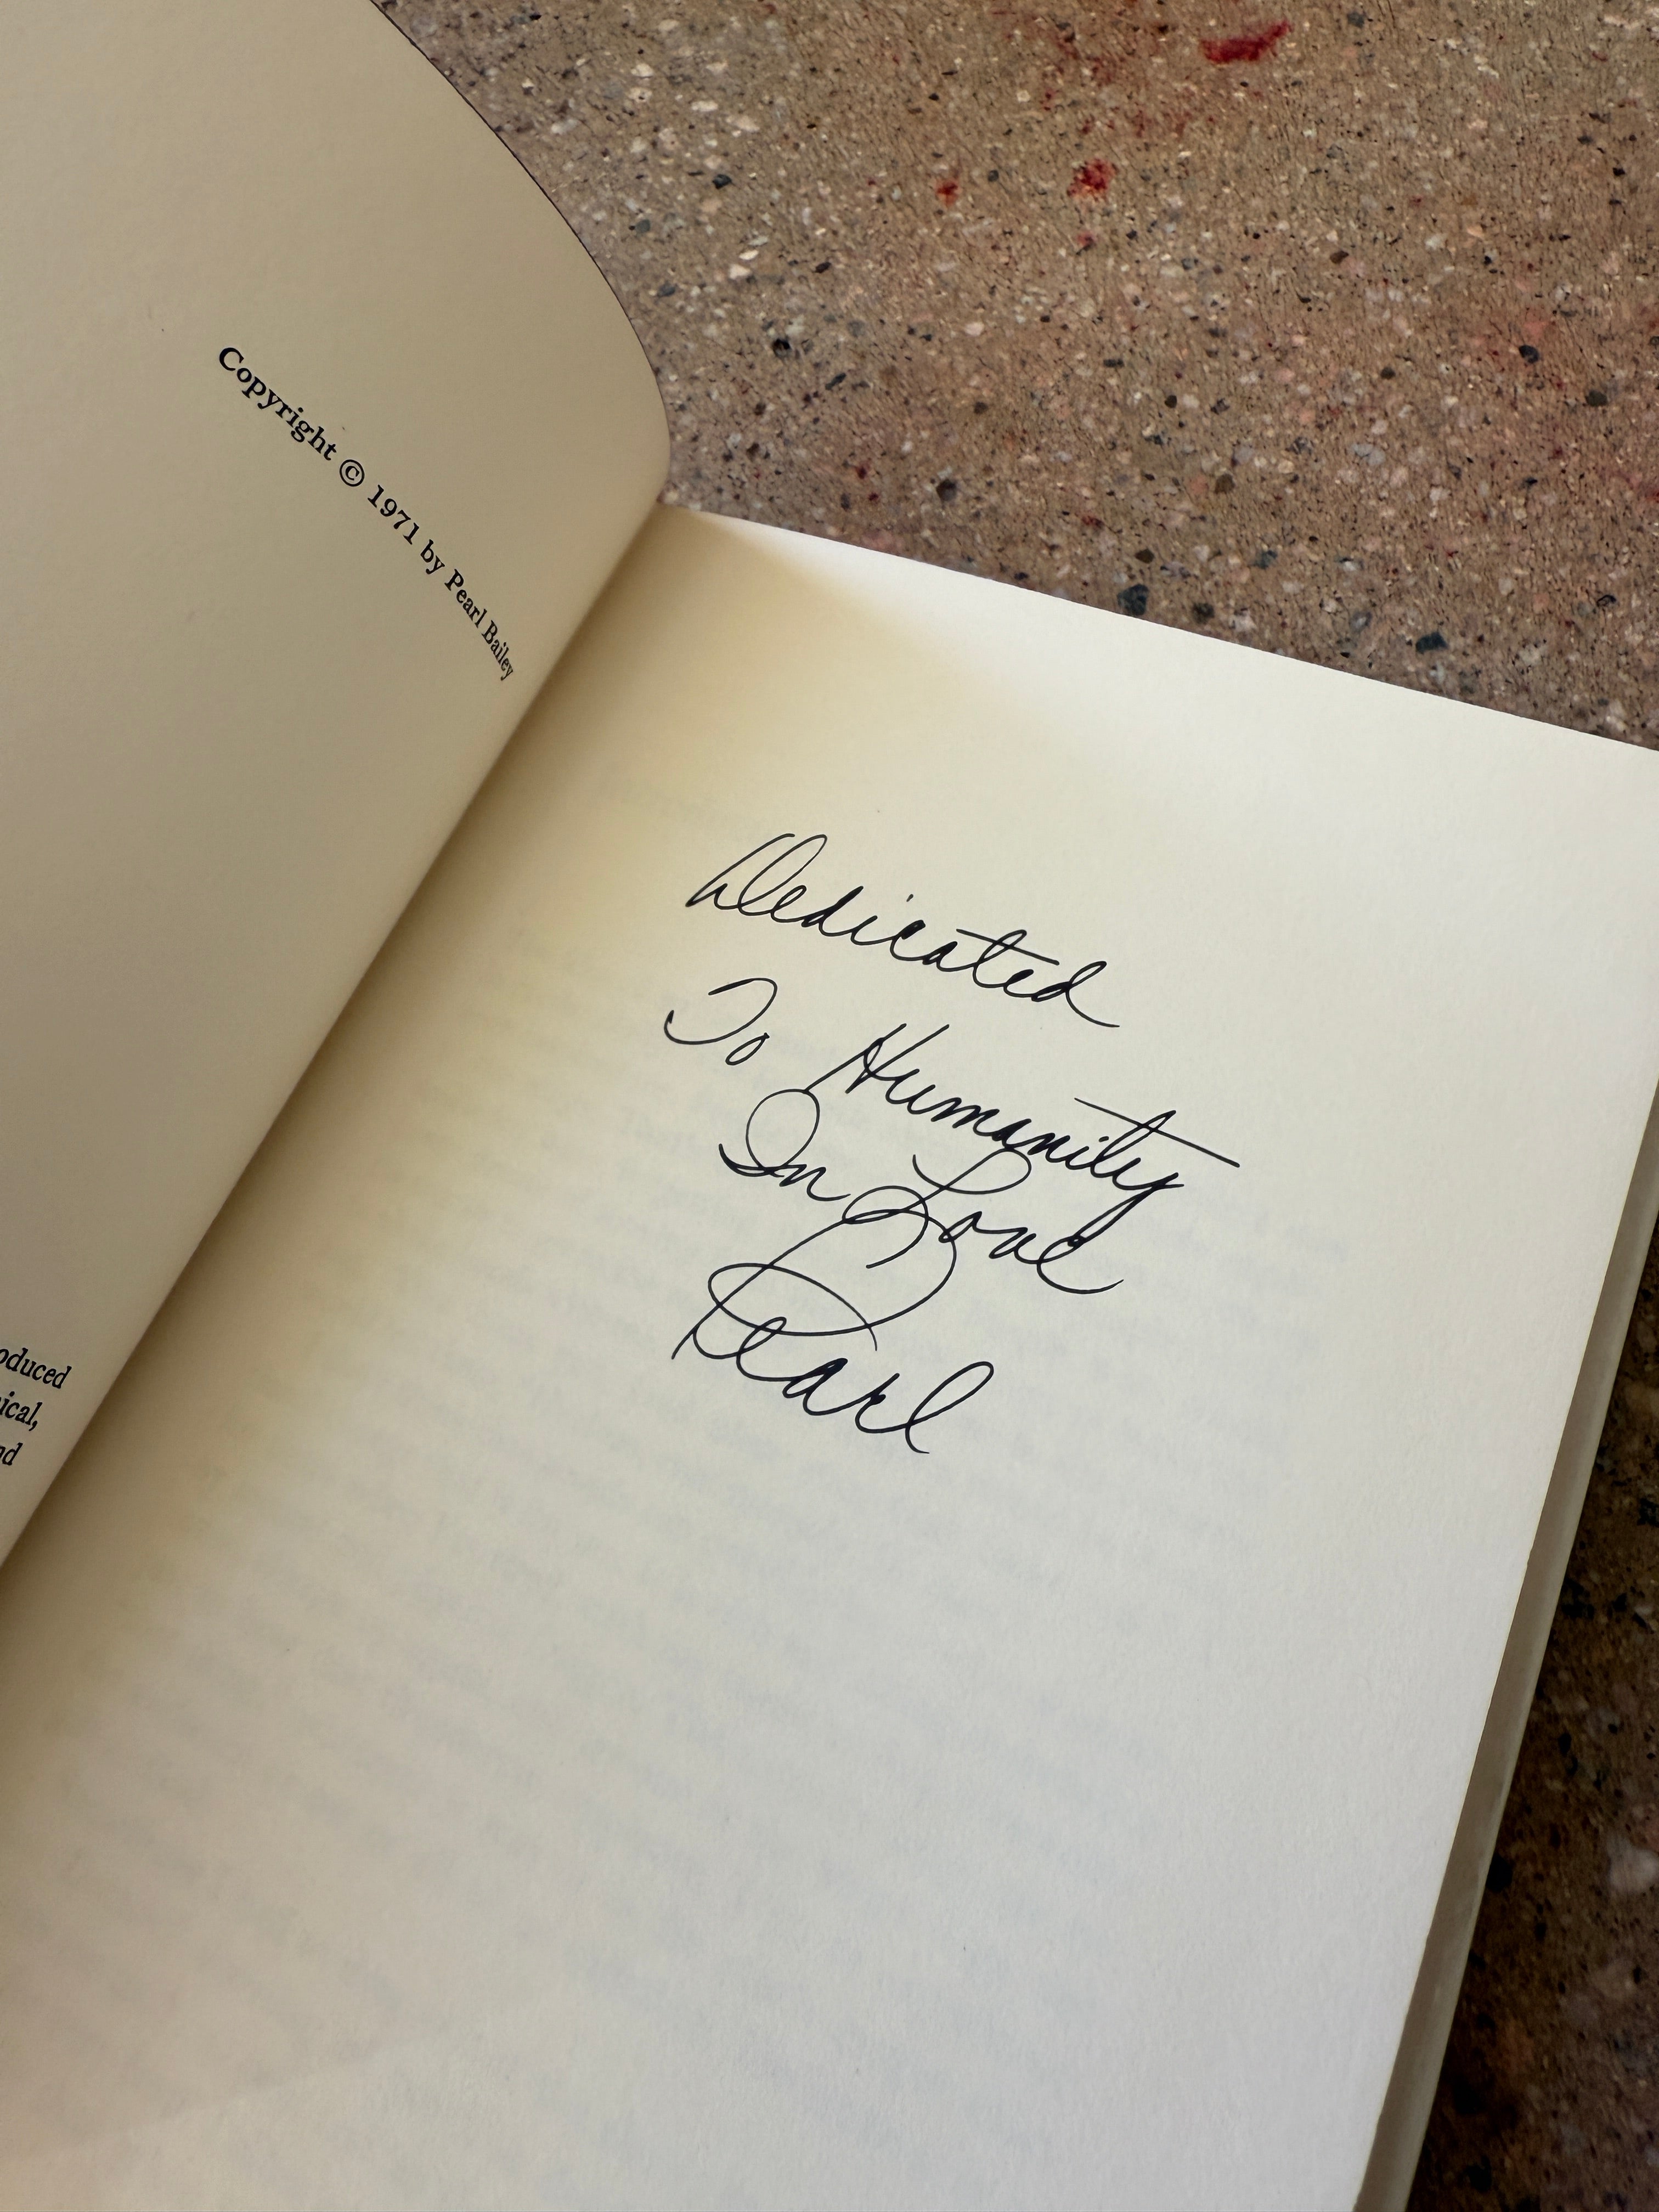 Copyright © 1971 by Pearl Bailey
oduced
ical,
nd
Dedicated
To Humanity
In Love
Pearl